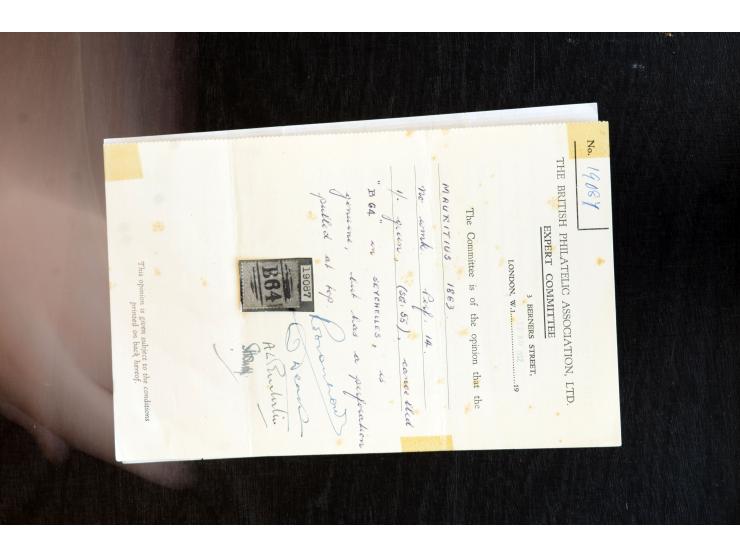 No. 19087
THE BRITISH PHILATELIC ASSOCIATION, LTD.
EXPERT COMMITTEE
3 BERNERS STREET,
LONDON, W.1. 19
The Committee is of the opinion that the
MAURITIUS 1863
No wmk Perf. 14.
1/- green, (SG. 55), cancelled
"B64" in SEYCHELLES, is
genuine, but has a perforation
pulled at top
19087
B64
This opinion is given subject to the conditions
printed on back hereof.